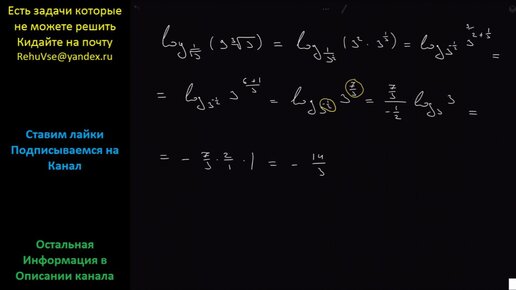 Есть задачи которые
не можете решить
Кидайте на почту
RehuVse@yandex.ru
Ставим лайки
Подписываемся на
Канал
Остальная
Информация в
Описании канала
log_{1/√3} (9∛3) = log_{1/3^{1/2}} (3^2 · 3^{1/3}) = log_{3^{-1/2}} 3^{2+1/3} =
= log_{3^{-1/2}} 3^{(6+1)/3} = log_{3^{-1/2}} 3^{7/3} = (7/3)/(-1/2) log_3 3 =
= - 7/3 · 2/1 · 1 = - 14/3